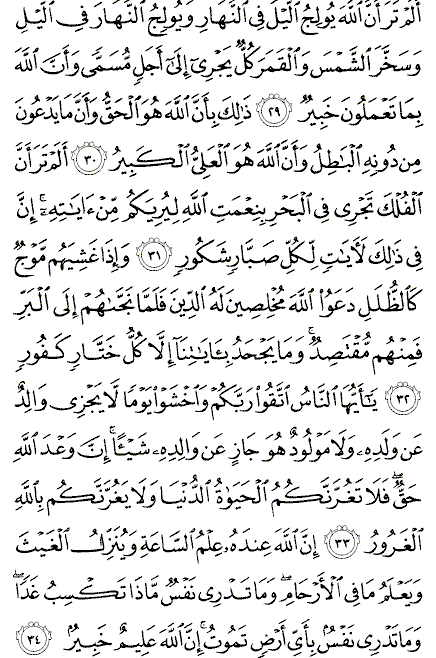 أَلَمْ تَرَ أَنَّ ٱللَّهَ يُولِجُ ٱلَّيْلَ فِى ٱلنَّهَارِ وَيُولِجُ ٱلنَّهَارَ فِى ٱلَّيْلِ
وَسَخَّرَ ٱلشَّمْسَ وَٱلْقَمَرَ كُلٌّ يَجْرِىٓ إِلَىٰٓ أَجَلٍ مُّسَمًّى وَأَنَّ ٱللَّهَ
بِمَا تَعْمَلُونَ خَبِيرٌ ٢٩ ذَٰلِكَ بِأَنَّ ٱللَّهَ هُوَ ٱلْحَقُّ وَأَنَّ مَا يَدْعُونَ
مِن دُونِهِ ٱلْبَٰطِلُ وَأَنَّ ٱللَّهَ هُوَ ٱلْعَلِىُّ ٱلْكَبِيرُ ٣٠ أَلَمْ تَرَ أَنَّ
ٱلْفُلْكَ تَجْرِى فِى ٱلْبَحْرِ بِنِعْمَتِ ٱللَّهِ لِيُرِيَكُم مِّنْ ءَايَٰتِهِۦٓ ۚ إِنَّ
فِى ذَٰلِكَ لَءَايَٰتٍ لِّكُلِّ صَبَّارٍ شَكُورٍ ٣١ وَإِذَا غَشِيَهُم مَّوْجٌ
كَٱلظُّلَلِ دَعَوُا۟ ٱللَّهَ مُخْلِصِينَ لَهُ ٱلدِّينَ فَلَمَّا نَجَّىٰهُمْ إِلَى ٱلْبَرِّ
فَمِنْهُم مُّقْتَصِدٌ ۚ وَمَا يَجْحَدُ بِـَٔايَٰتِنَآ إِلَّا كُلُّ خَتَّارٍ كَفُورٍ
٣٢ يَٰٓأَيُّهَا ٱلنَّاسُ ٱتَّقُوا۟ رَبَّكُمْ وَٱخْشَوْا۟ يَوْمًا لَّا يَجْزِى وَالِدٌ
عَن وَلَدِهِۦ وَلَا مَوْلُودٌ هُوَ جَازٍ عَن وَالِدِهِۦ شَيْـًٔا ۚ إِنَّ وَعْدَ ٱللَّهِ
حَقٌّ ۖ فَلَا تَغُرَّنَّكُمُ ٱلْحَيَوٰةُ ٱلدُّنْيَا وَلَا يَغُرَّنَّكُم بِٱللَّهِ
ٱلْغَرُورُ ٣٣ إِنَّ ٱللَّهَ عِندَهُۥ عِلْمُ ٱلسَّاعَةِ وَيُنَزِّلُ ٱلْغَيْثَ
وَيَعْلَمُ مَا فِى ٱلْأَرْحَامِ ۖ وَمَا تَدْرِى نَفْسٌ مَّاذَا تَكْسِبُ غَدًا ۖ
وَمَا تَدْرِى نَفْسٌۢ بِأَىِّ أَرْضٍ تَمُوتُ ۚ إِنَّ ٱللَّهَ عَلِيمٌ خَبِيرٌۢ ٣٤